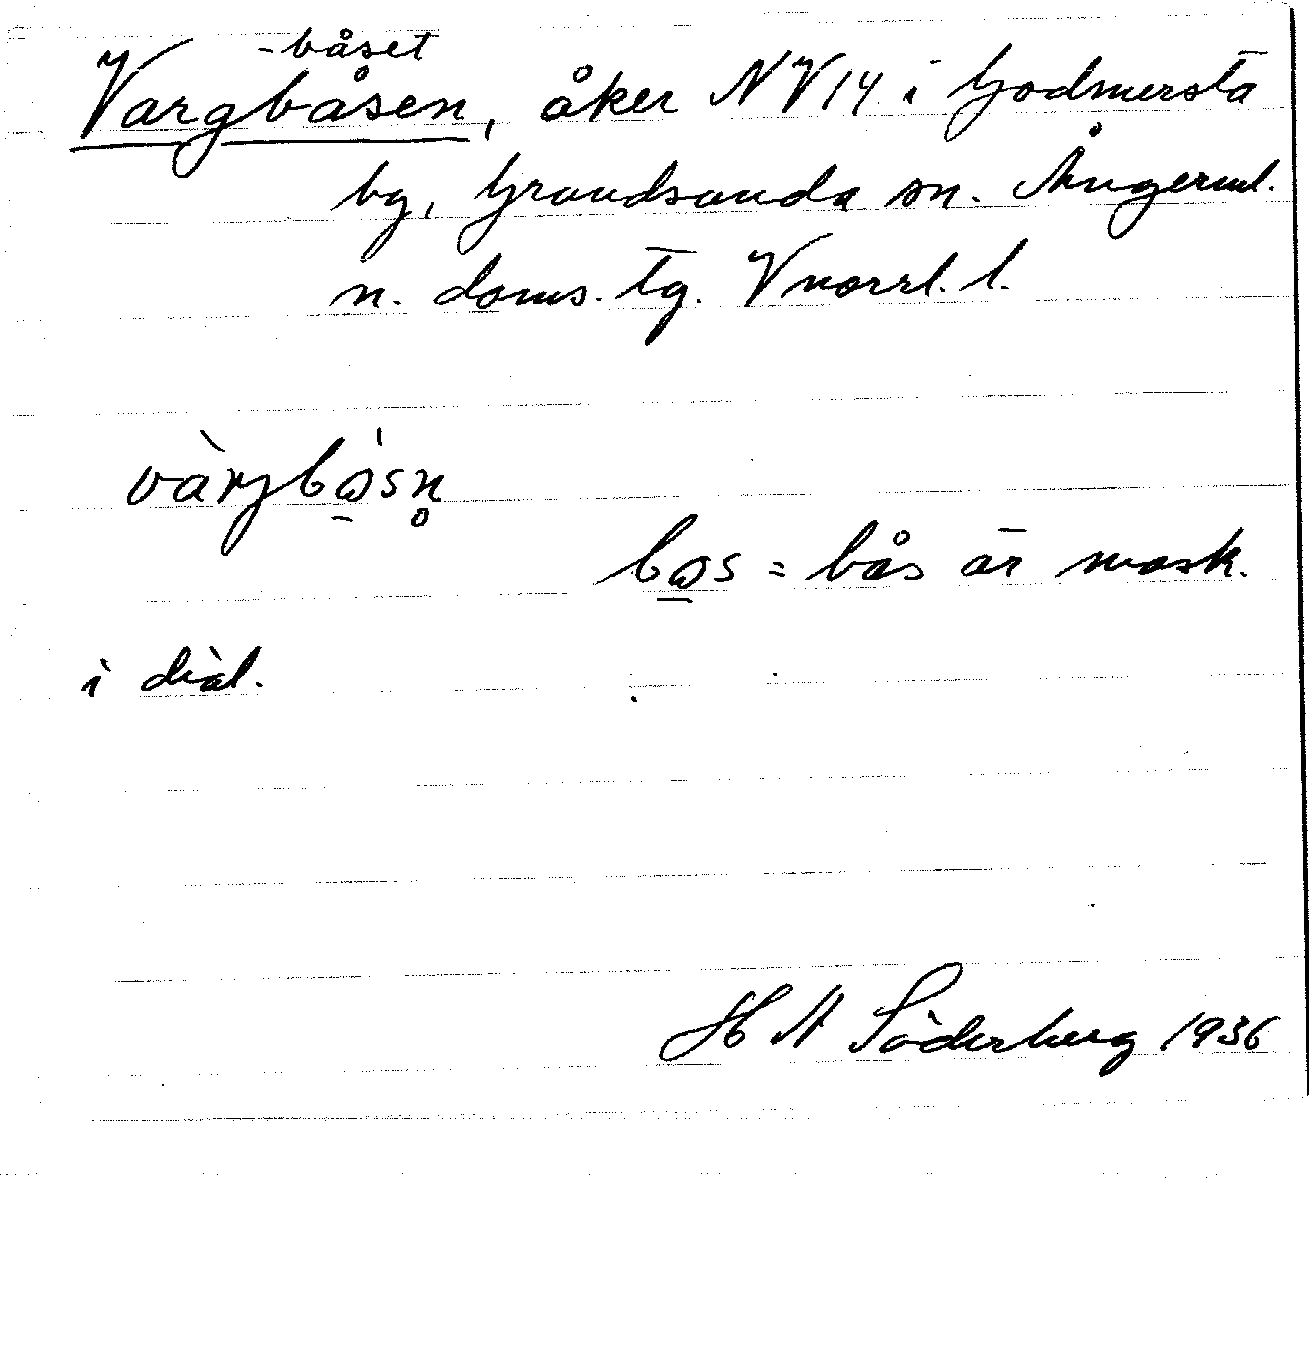 -båset
Vargbåsen, åker NV14 i Godmersta
by, Grundsunda sn. Ångerml.
n. doms. tg. Vnorrl. l.
bås är mask.
i dial.
H A Söderberg 1936